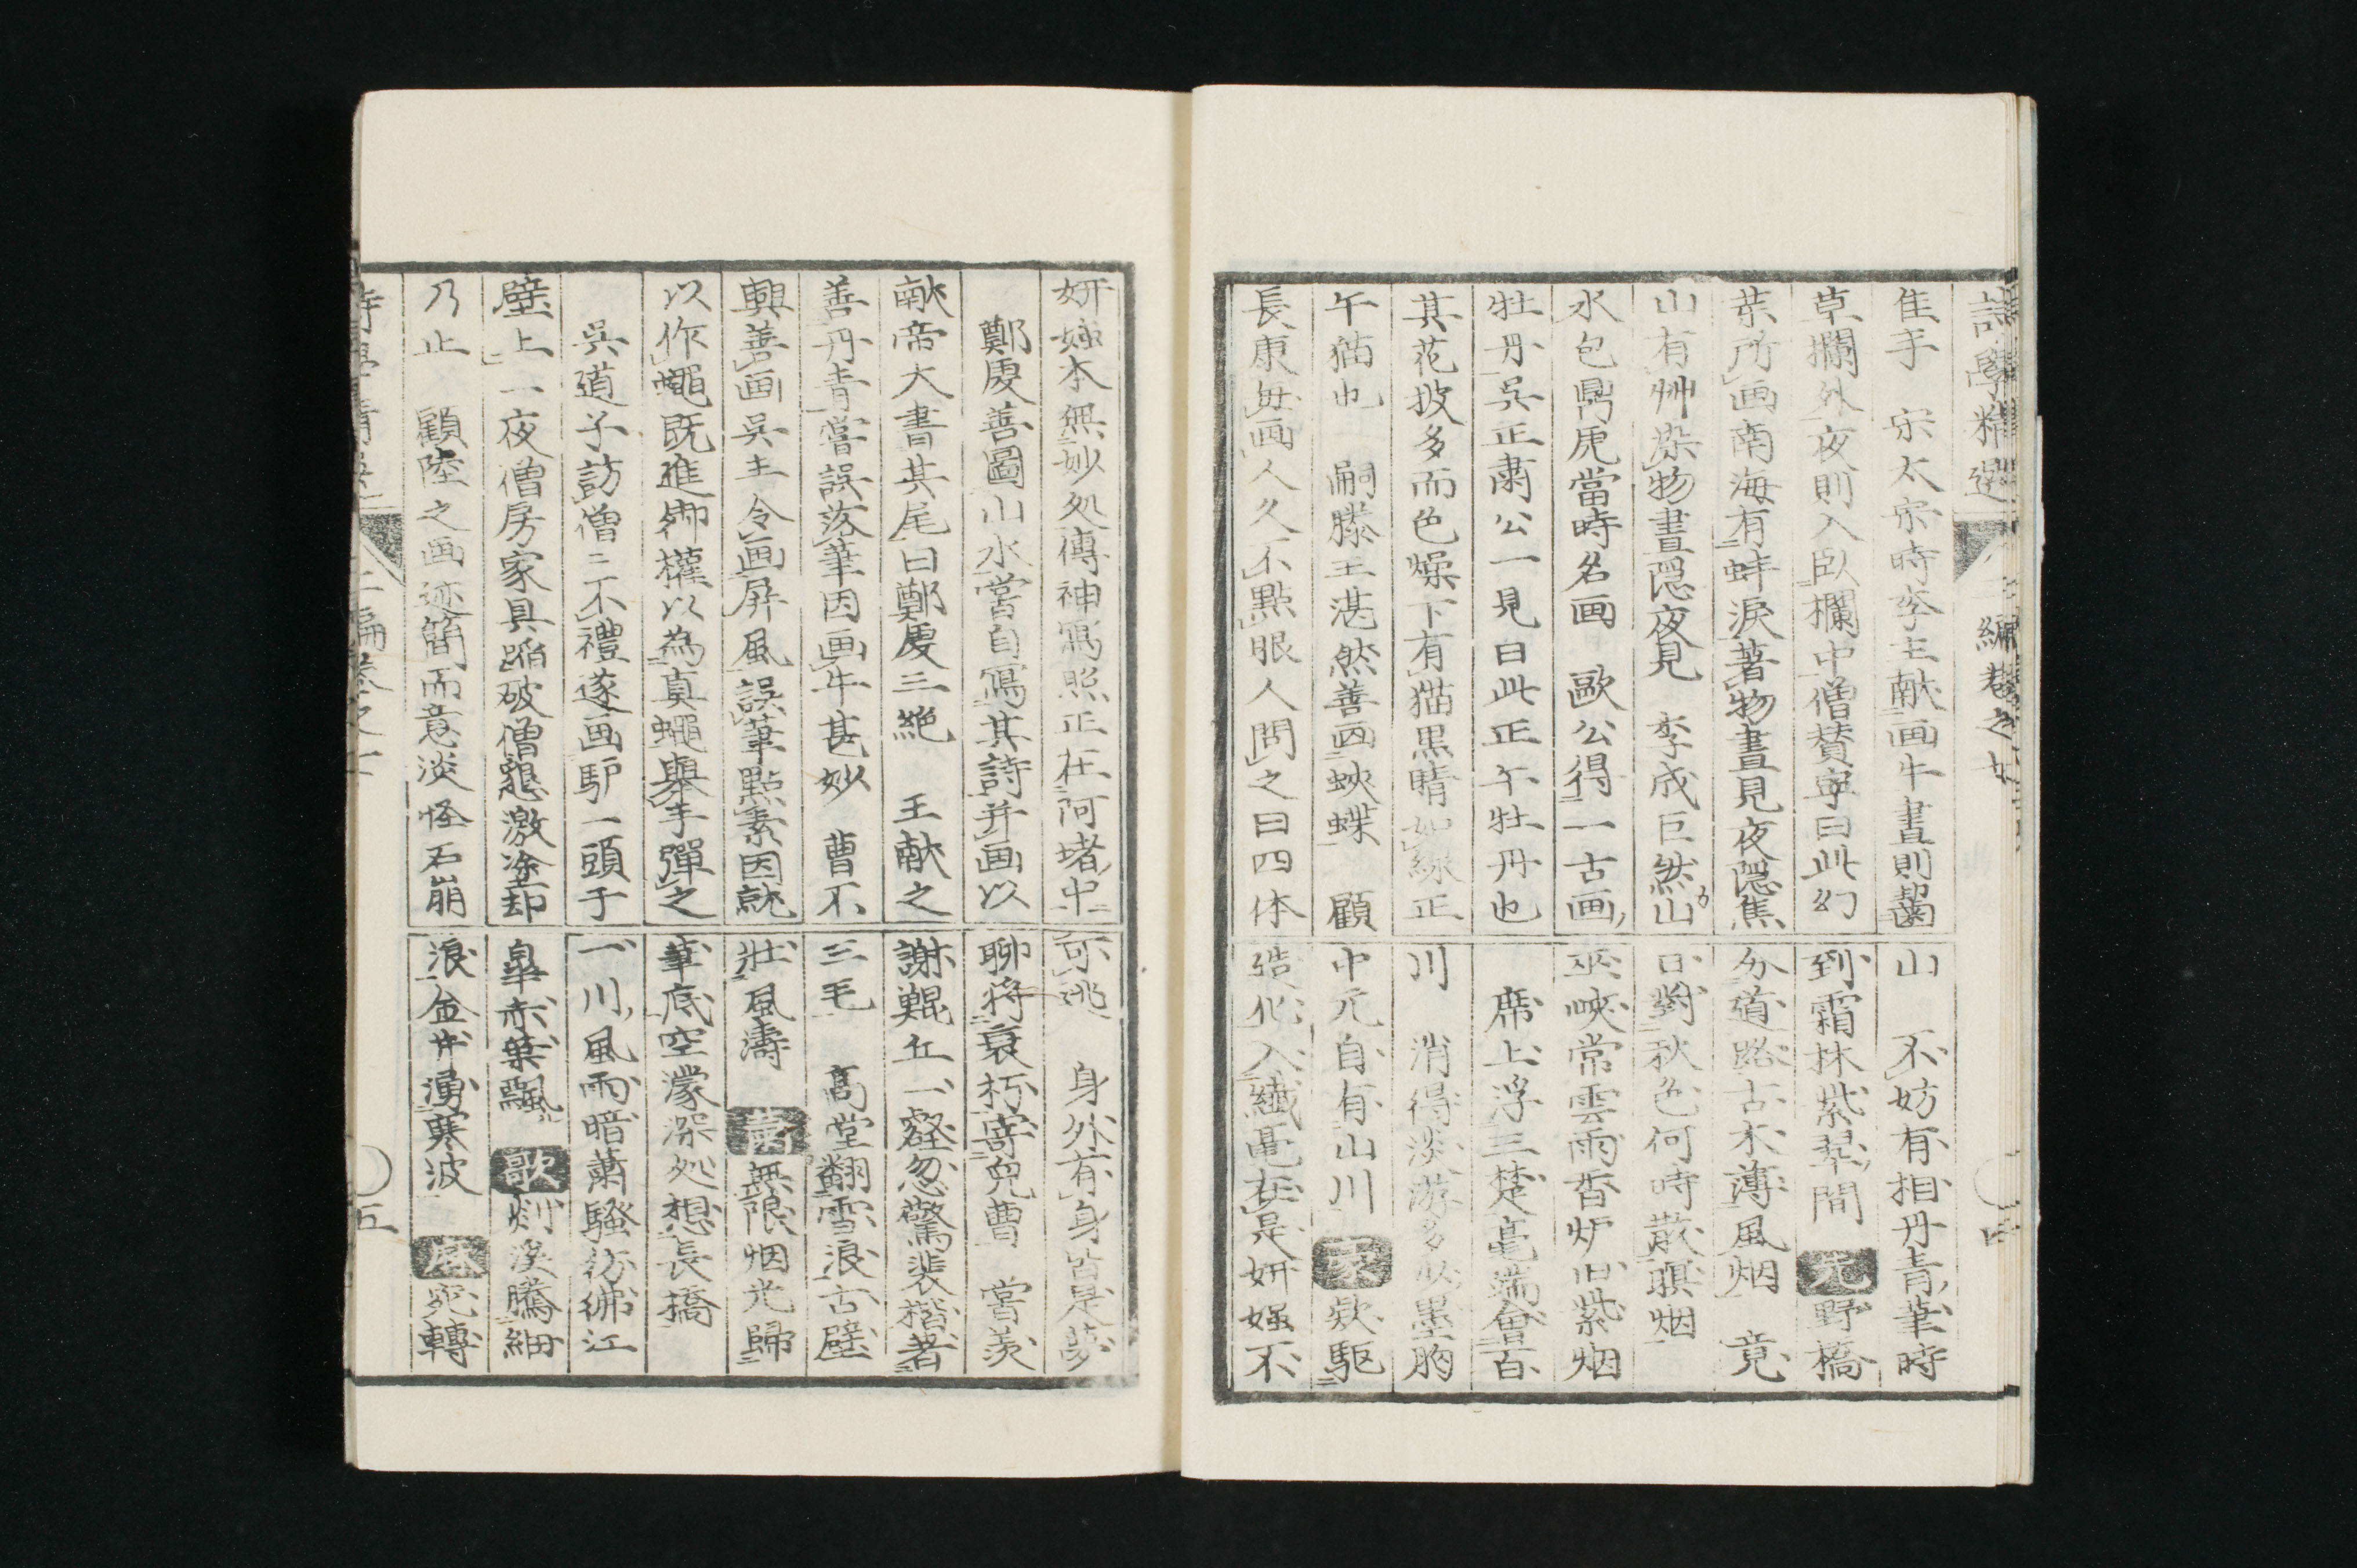 詩學精選
二編巻之七
隹手 宋太宗時李主献画牛晝則齧
草欄外夜則入臥欄中僧賛寧曰此幻
葉所画南海有蚌淚著物晝見夜隠焦
山有艸染物晝隠夜見 李成巨然山
水包鼎虎當時名画 歐公得一古画
牡丹吳正粛公一見曰此正午牡丹也
其花披多而色燥下有猫黒睛如線正
午猫也 嗣滕王湛然善画蛺蝶 顧
長康毎画人久不點眼人問之曰四体
山 不妨有相丹青筆時
到霜林紫翠間 元 野橋
分道路古木薄風烟 竟
日對秋色何時散暝烟
巫峽常雲雨香炉旧紫烟
席上浮三楚毫端會百
川 消得淡游多少墨胸
中元自有山川 家 欻駆
造化入繊毫在是妍媸不
妍媸本無妙処傳神寫照正在阿堵中
鄭虔善圖山水嘗自寫其詩并画以
献帝大書其尾曰鄭虔三絶 王献之
善丹青嘗誤落筆因画牛甚妙 曹不
興善画吳主令画屏風誤筆點素因就
以作蠅既進御權以為真蠅舉手彈之
吳道子訪僧三不禮遂画馿一頭于
壁上一夜僧房家具踏破僧懇激塗却
乃止 顧陸之画迹簡而意淡怪石崩
可逃 身外有身皆是夢
聊將衰朽寄兒曹 嘗羨
謝鯤丘一壑忽驚裴楷著
三毛 髙堂翻雪浪古壁
壯風濤 無限烟光歸
筆底空濛深処想長橋
一川風雨暗蕭騷彷彿江
皐赤葉飄 歌 剡溪騰細
浪金井湧寒波 宛轉
二編巻之七
五